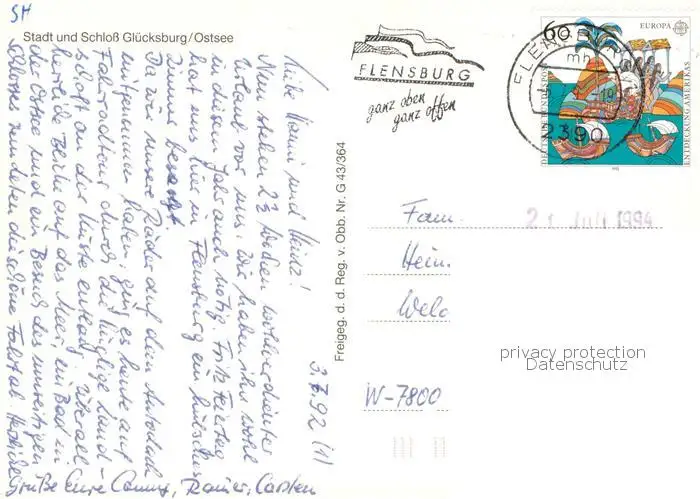 SH
Stadt und Schloß Glücksburg/Ostsee
3.7.92 (1)
Liebe Hanni und Heinz!
Nun stehen 2½ Wochen wohlverdienter
Urlaub vor uns. Wir haben ihn wohl
in diesem Jahr auch nötig. Fritz
hat uns hier in Flensburg ein hübsches
Zimmer besorgt.
Da wir unsere Räder auf dem Autodach
mitgenommen haben, ging es heute auf
Fahrradtour durch die hügelige Land
schaft an der Küste entlang. Überall
herrliche Blicke auf das Meer, ein Bad in
der Ostsee und ein Besuch des
Schlosses rundeten die schöne Fahrt ab. Herzliche
Grüße Eure Conny, Rainer, Carsten
Freigeg. d. d. Reg. v. Obb. Nr. G 43/364
FLENSBURG
ganz oben
ganz offen
FLENSB
mh
2390
60
EUROPA
DEUTSCHE BUNDESPOST
ENTDECKUNG AMERIKAS
1992
Fam.
21. Juli 1994
Hein
Wel
W-7800
privacy protection
Datenschutz